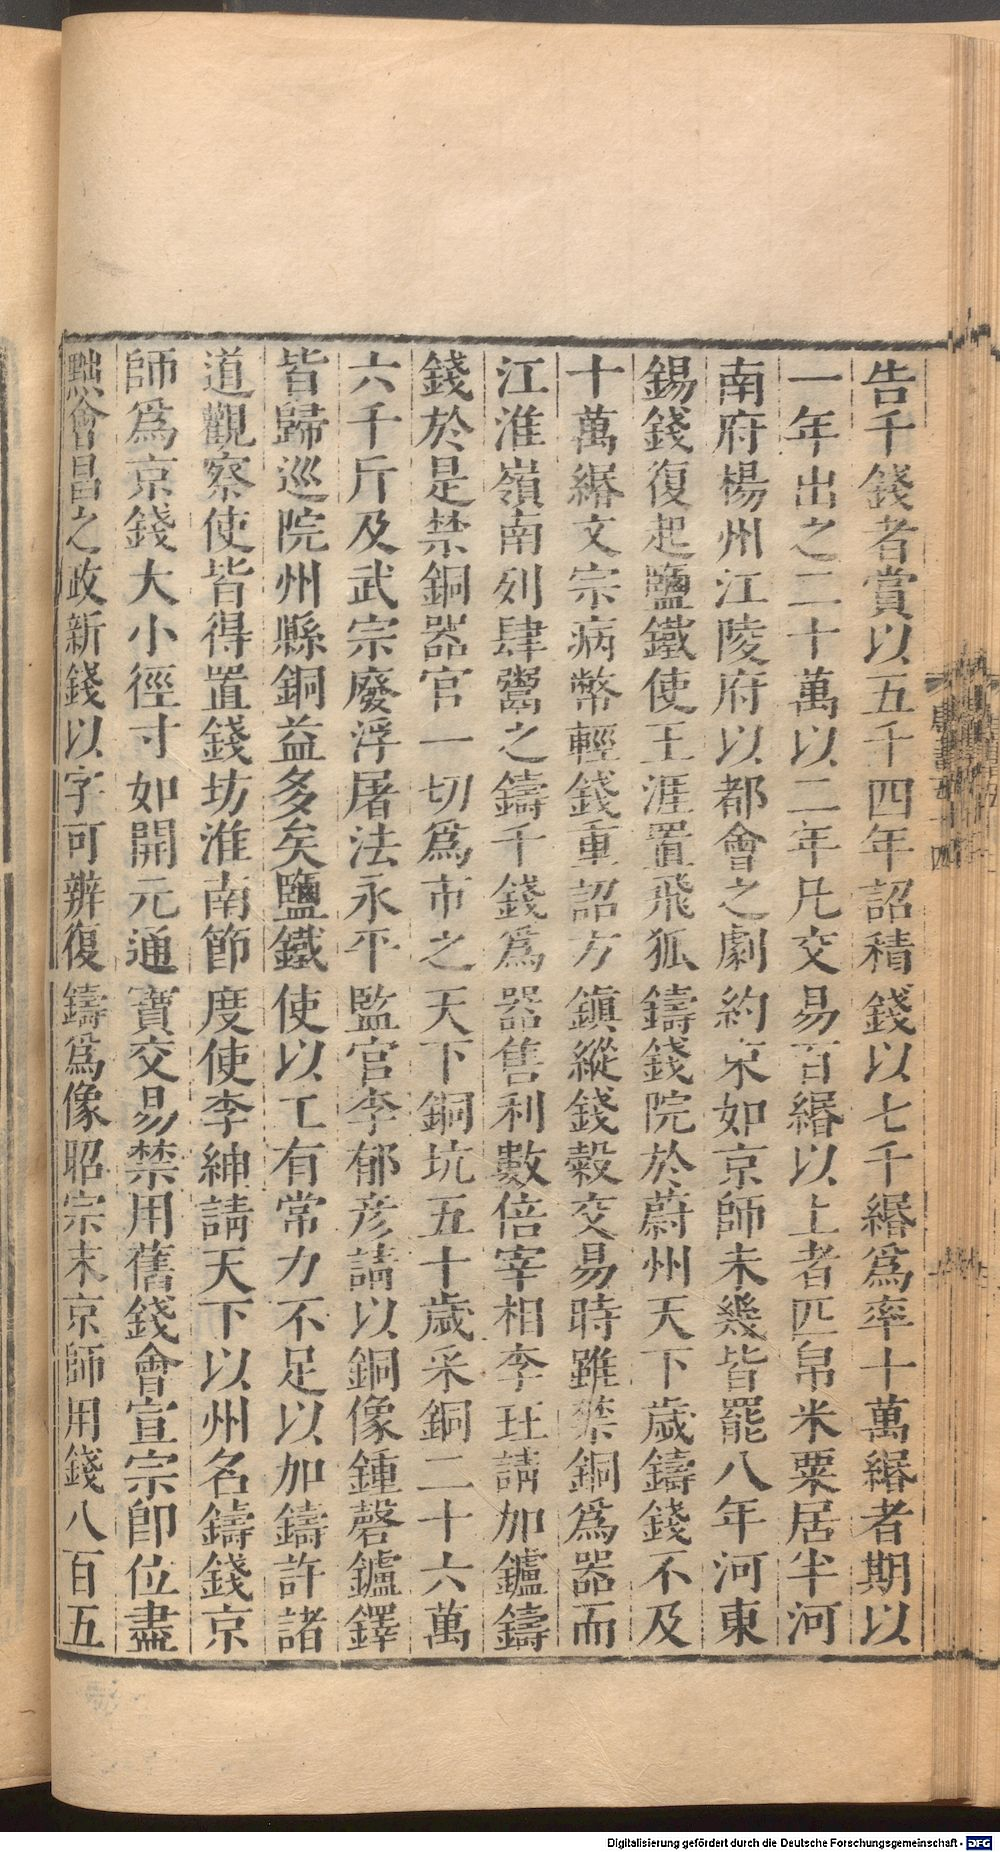 告千錢者賞以五千四年詔積錢以七千緡爲率十萬緡者期以
一年出之二十萬以二年凡交易百緡以上者匹帛米粟居半河
南府楊州江陵府以都會之劇約束如京師未幾皆罷八年河東
錫錢復起鹽鐵使王涯置飛狐鑄錢院於蔚州天下歲鑄錢不及
十萬緡文宗病幣輕錢重詔方鎮縱錢穀交易時雖禁銅爲器而
江淮嶺南列肆鬻之鑄千錢爲器售利數倍宰相李珏請加鑪鑄
錢於是禁銅器官一切爲市之天下銅坑五十歲采銅二十六萬
六千斤及武宗廢浮屠法永平監官李郁彦請以銅像鍾磬鑪鐸
皆歸巡院州縣銅益多矣鹽鐵使以工有常力不足以加鑄許諸
道觀察使皆得置錢坊淮南節度使李紳請天下以州名鑄錢京
師爲京錢大小徑寸如開元通寶交易禁用舊錢會宣宗卽位盡
黜會昌之政新錢以字可辨復鑄爲像昭宗末京師用錢八百五
Digitalisierung gefördert durch die Deutsche Forschungsgemeinschaft - DFG